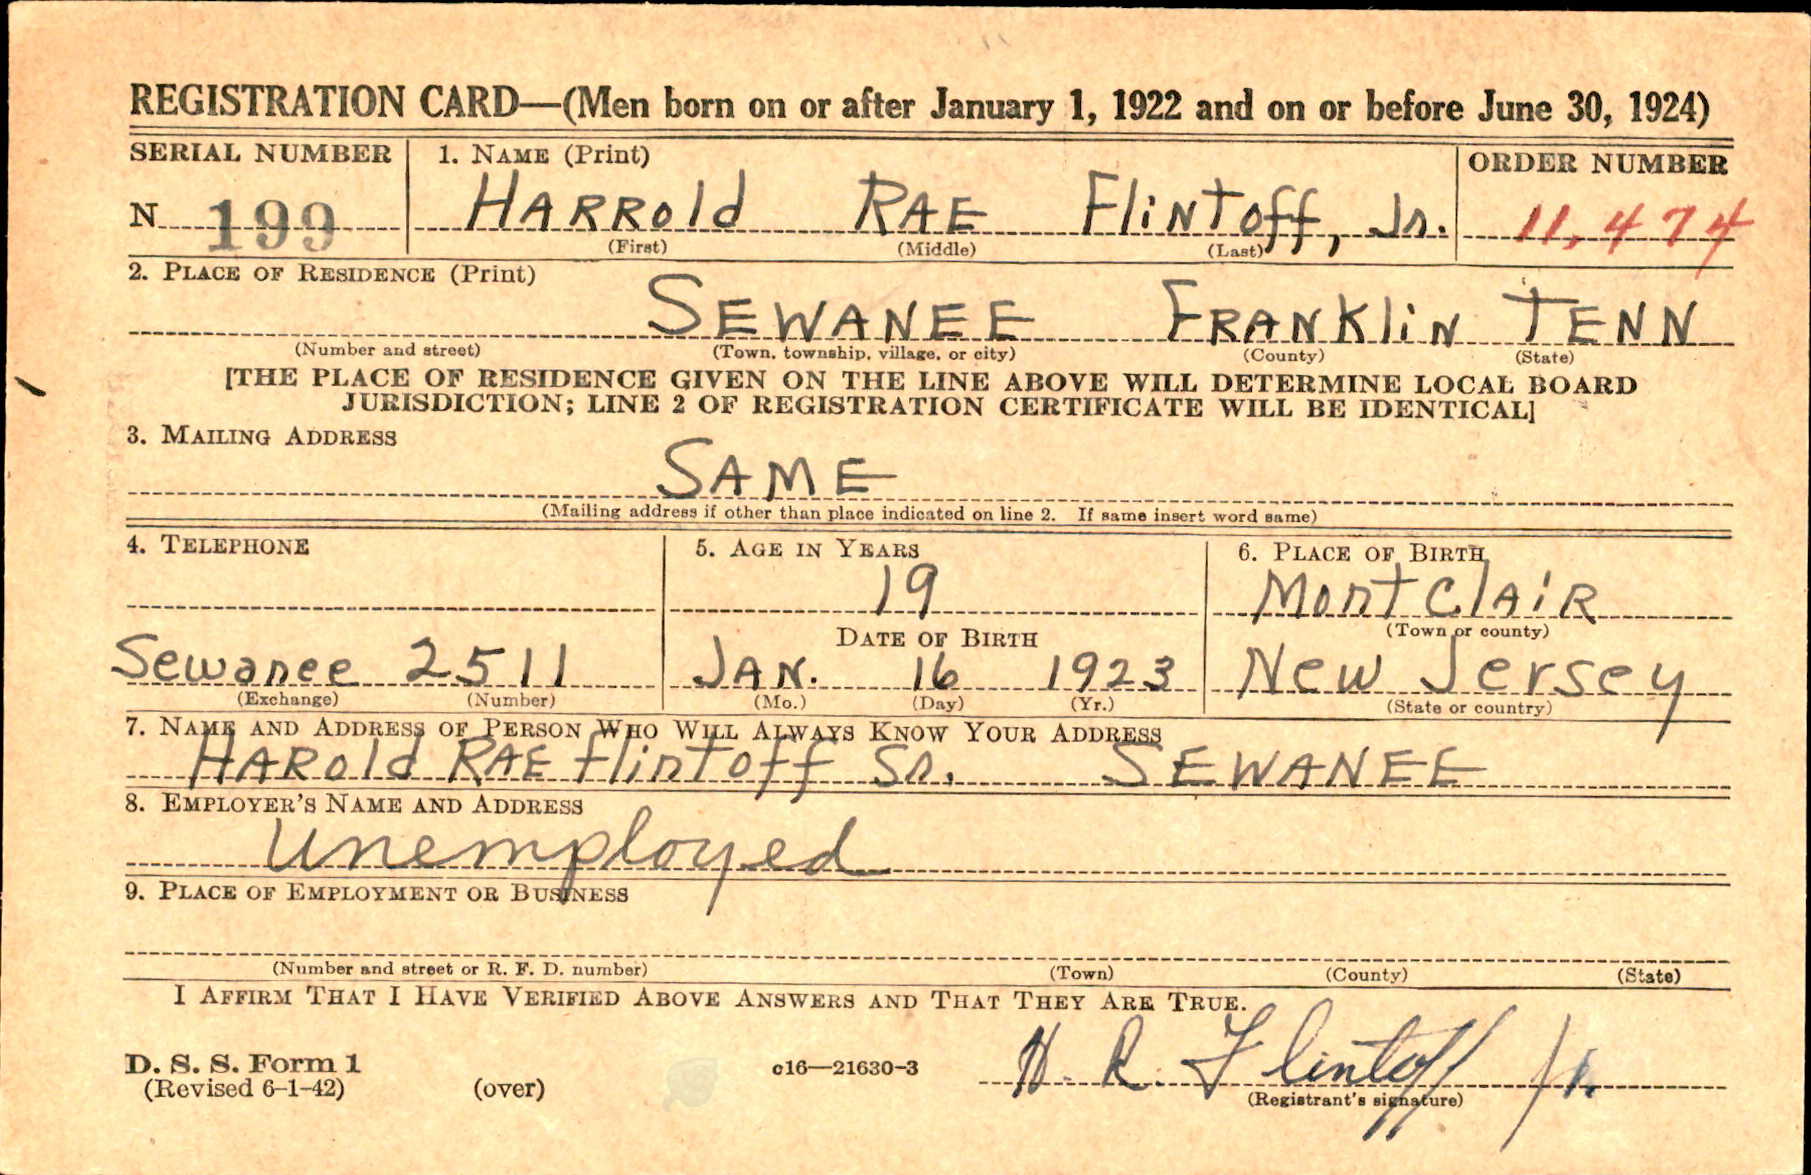 REGISTRATION CARD—(Men born on or after January 1, 1922 and on or before June 30, 1924)
SERIAL NUMBER 1. NAME (Print) ORDER NUMBER
N 199 HARRold RAE FlinToff, Jr. 11,474
(First) (Middle) (Last)
2. PLACE OF RESIDENCE (Print)
SEWANEE FRANKliN TENN
(Number and street) (Town, township, village, or city) (County) (State)
[THE PLACE OF RESIDENCE GIVEN ON THE LINE ABOVE WILL DETERMINE LOCAL BOARD
JURISDICTION; LINE 2 OF REGISTRATION CERTIFICATE WILL BE IDENTICAL]
3. MAILING ADDRESS
SAME
(Mailing address if other than place indicated on line 2. If same insert word same)
4. TELEPHONE 5. AGE IN YEARS 6. PLACE OF BIRTH
19 MontClAiR
DATE OF BIRTH (Town or county)
Sewanee 2511 JAN. 16 1923 New Jersey
(Exchange) (Number) (Mo.) (Day) (Yr.) (State or country)
7. NAME AND ADDRESS OF PERSON WHO WILL ALWAYS KNOW YOUR ADDRESS
HARold RAE flintoff Sr. SEWANEE
8. EMPLOYER'S NAME AND ADDRESS
Unemployed
9. PLACE OF EMPLOYMENT OR BUSINESS
(Number and street or R. F. D. number) (Town) (County) (State)
I AFFIRM THAT I HAVE VERIFIED ABOVE ANSWERS AND THAT THEY ARE TRUE.
D. S. S. Form 1
(Revised 6-1-42) (over) c16—21630-3 H. R. Flintoff Jr.
(Registrant's signature)